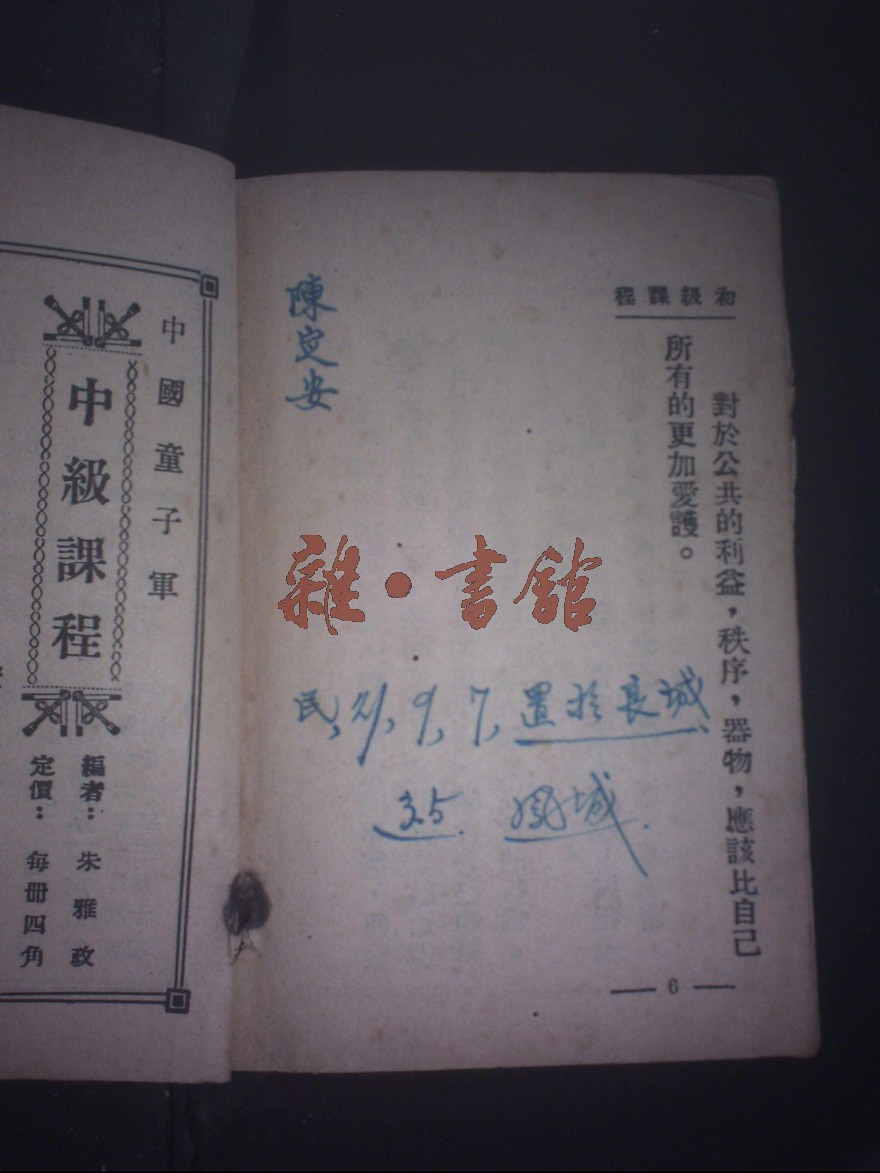 初級課程
對於公共的利益，秩序，器物，應該比自己
所有的更加愛護。
6
陳定安
民,21,9,7,置於長城
鳳城
雜·書館
中國童子軍
中級課程
編者：朱雅政
定價：每冊四角